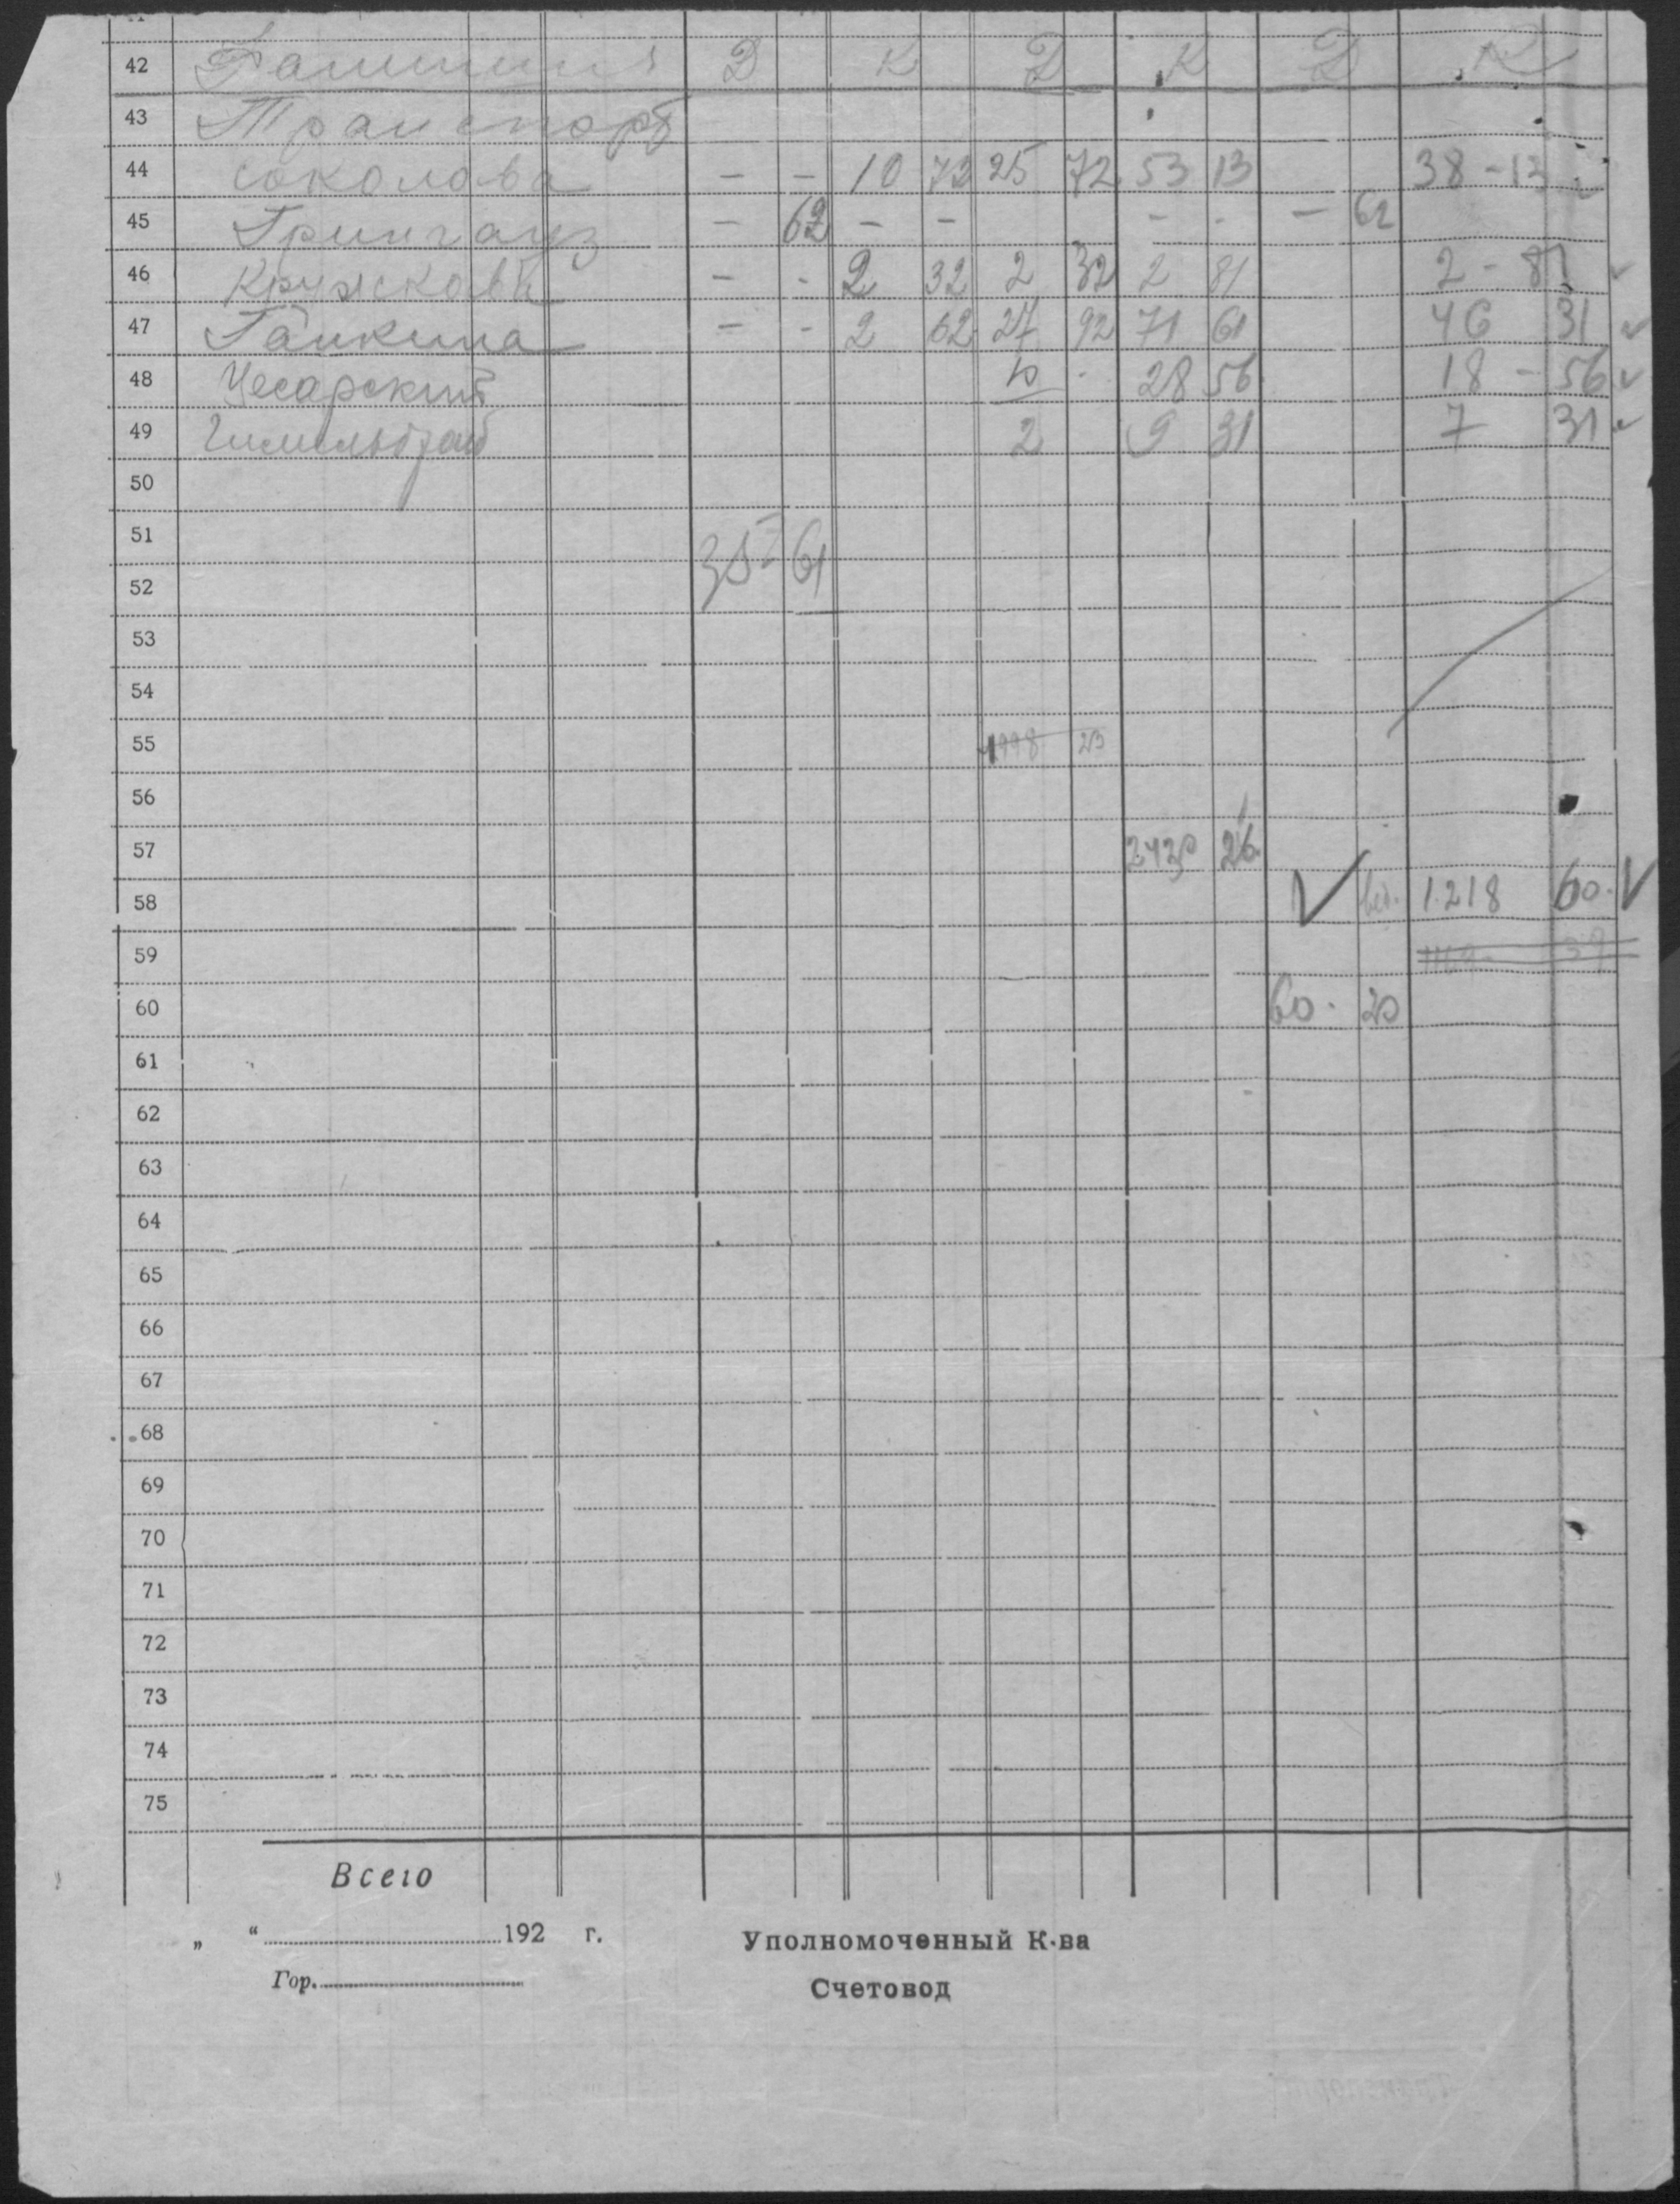 42 Фамилия Д К Д К Д К
43 Транспорт
44 Соколова – – 10 72 25 72 53 13 38 – 13
45 Грингауз – 62 – – – – – 62
46 Кружкова – - 2 32 2 32 2 81 2 – 81
47 Галкина – - 2 62 27 92 71 61 46 31
48 Цесарский 10 - 28 56 18 – 56
49 2 9 31 7 31
50
51
52 61
53
54
55 1998
56
57 26
58 1.218 60
59
60 60 - 20
61
62
63
64
65
66
67
68
69
70
71
72
73
74
75
Всего
„ “ 192 г. Уполномоченный К-ва
Гор. Счетовод